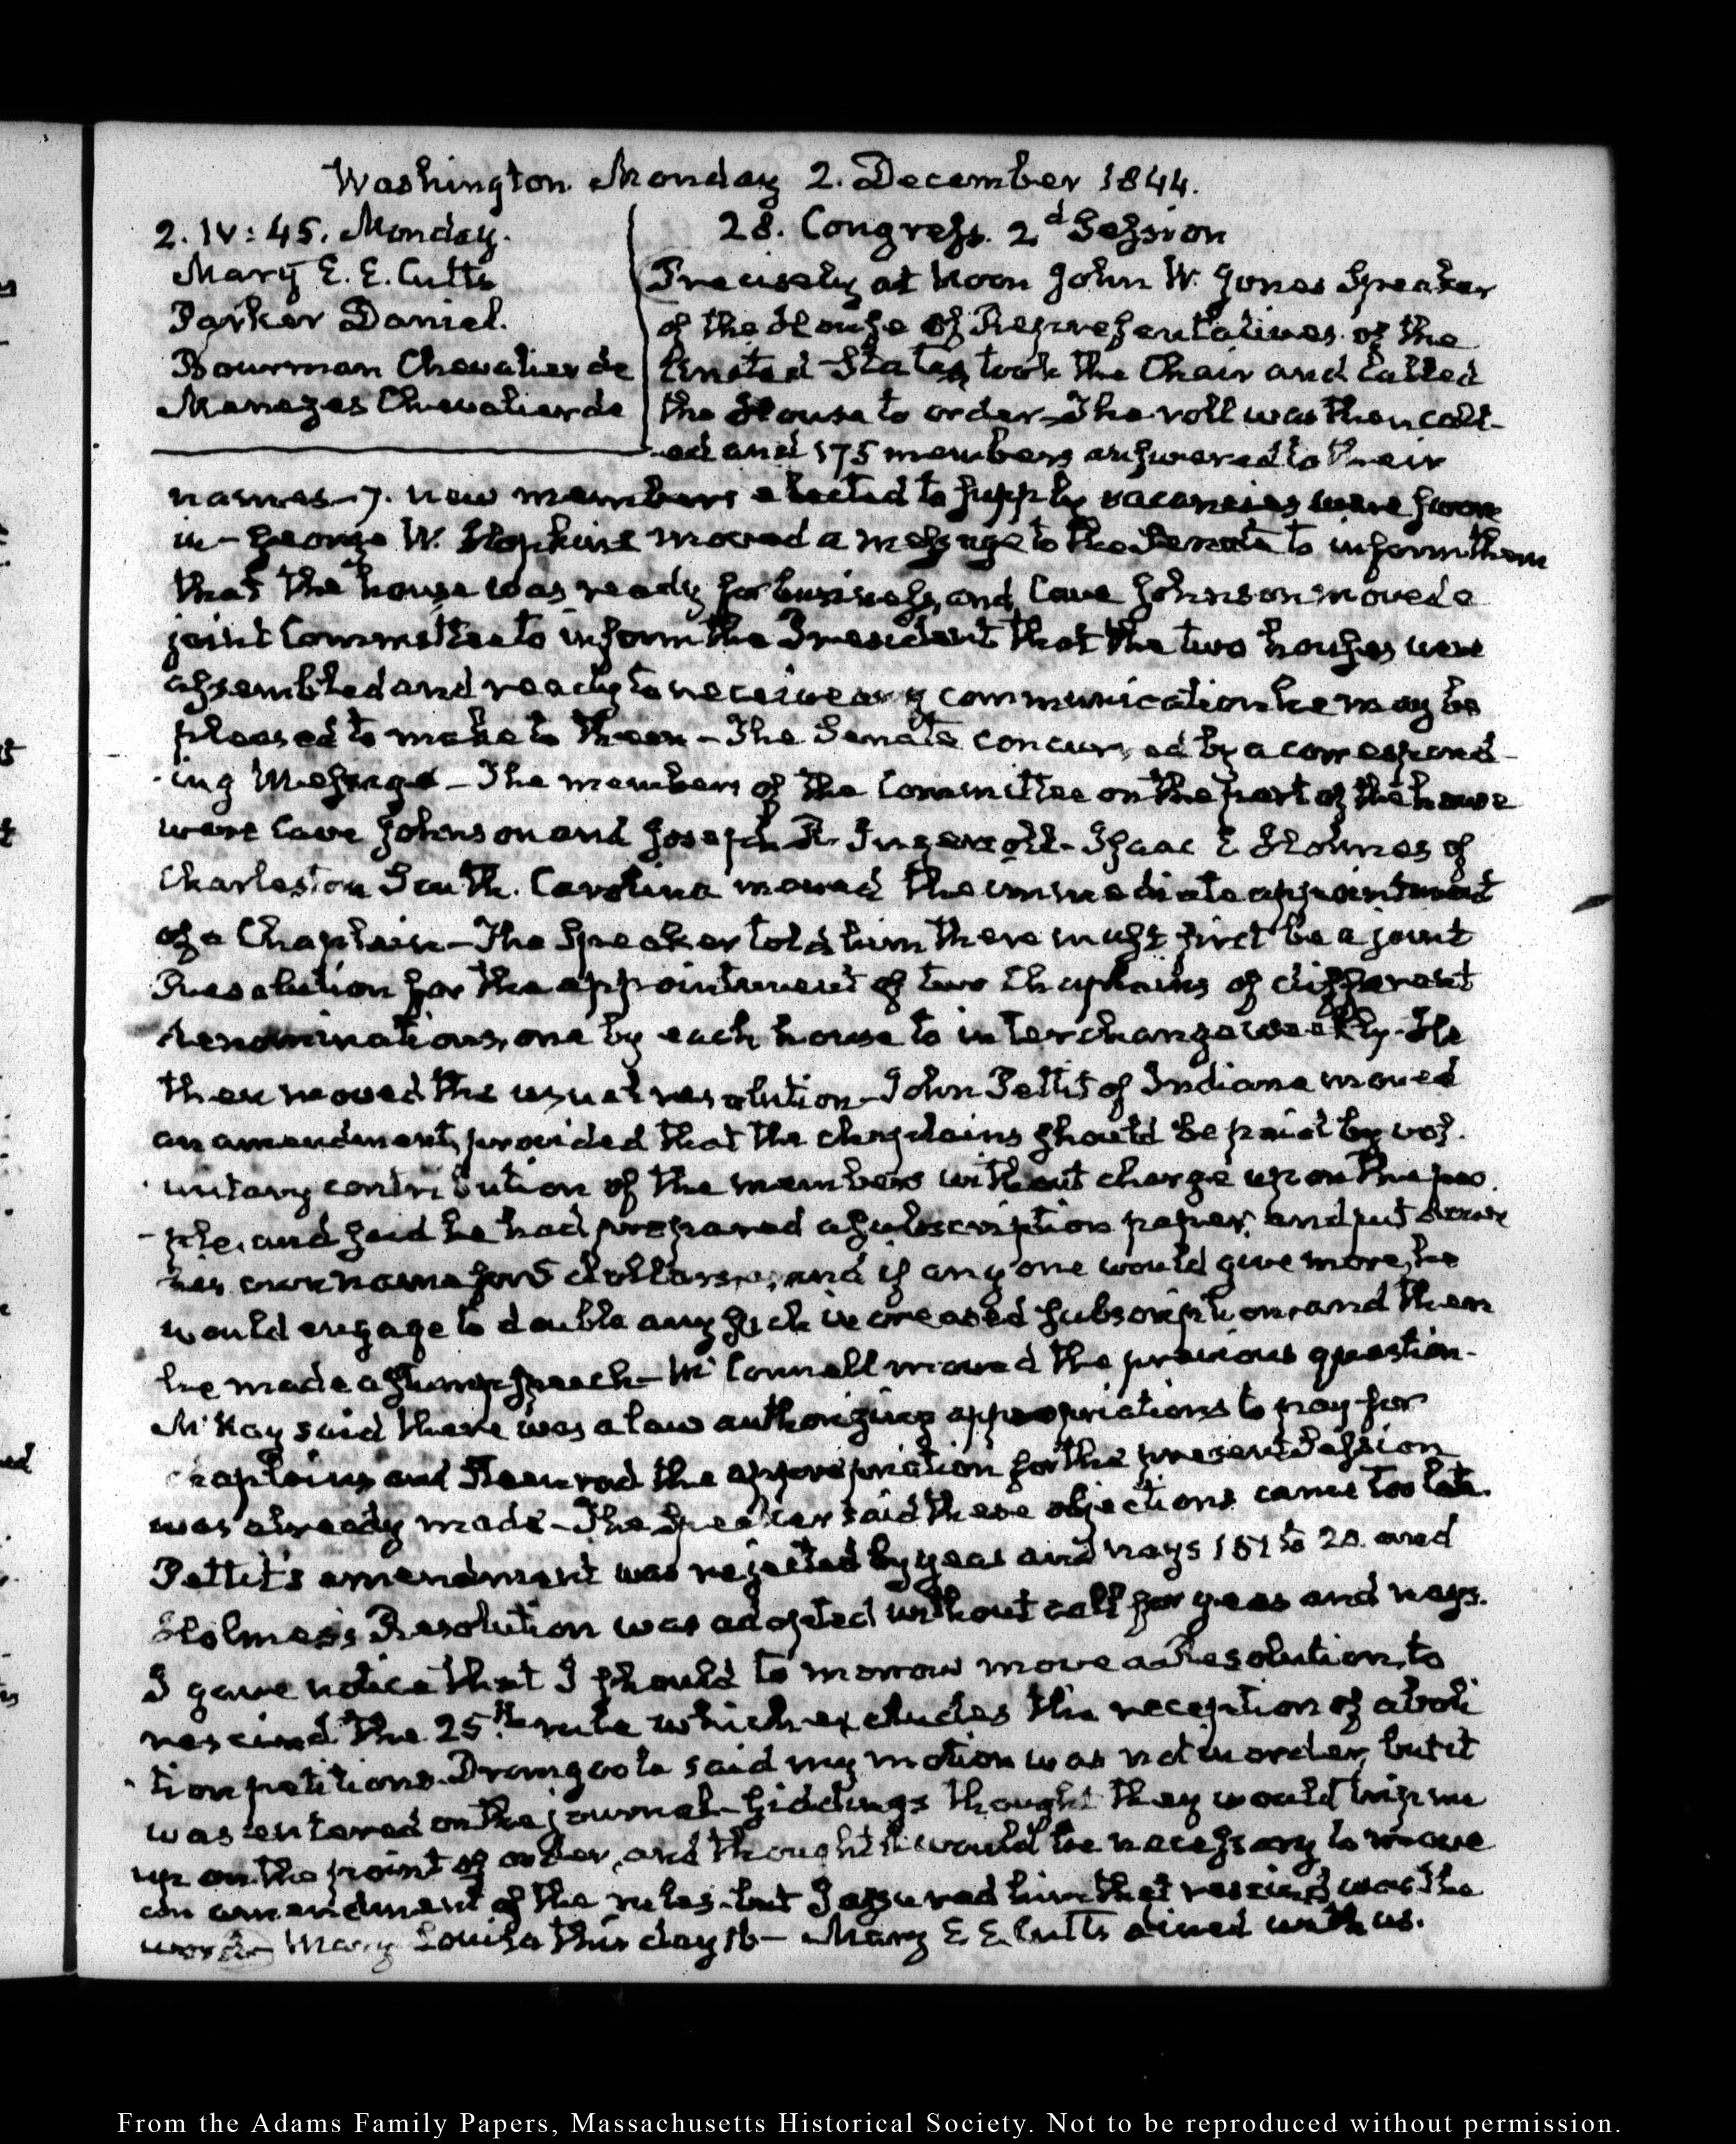 Washington Monday 2. December 1844.
2. IV: 45. Monday.
Mary E. E. Cutts
Parker Daniel.
Bourman Chevalier de
Menezes Chevalier de
28. Congress. 2d Session
Precisely at Noon John W. Jones Speaker
of the House of Representatives of the
United States took the Chair and called
the House to order – The roll was then call-
ed and 175 members answered to their
names – 7. new members elected to supply vacancies were sworn
in – George W. Hopkins moved a message to the Senate to inform them
that the house was ready for business, and Cave Johnson moved a
joint Committee to inform the President that the two houses were
assembled and ready to receive any communication he may be
pleased to make to them – The Senate concurred by a correspond-
ing Message – The members of the Committee on the part of the house
were Cave Johnson and Joseph R. Ingersoll – Isaac E Holmes of
Charleston South. Carolina moved the immediate appointment
of a Chaplain – The Speaker told him there must first be a joint
Resolution for the appointment of two Chaplains of different
denominations, one by each house to interchange weekly – He
then moved the usual resolution – John Pettit of Indiana moved
an amendment, provided that the chaplains should be paid by vol-
untary contribution of the members without charge upon the peo-
ple, and said he had prepared a subscription paper, and put down
his own name for 5 dollars, and if any one would give more, he
would engage to double any such increased subscription, and then
he made a stump speech – McConnell moved the previous question –
McKay said there was a law authorizing appropriations to pay for
chaplains and the appropriation for the present Session
was already made – The Speaker said these objections came too late.
Pettit's amendment was rejected by yeas and nays to and
Holmes's Resolution was adopted without call for yeas and nays.
I gave notice that I should to morrow move a Resolution, to
rescind the 25th rule which excludes the reception of aboli
tion petitions. Dromgoole said my motion was not in order, but it
was entered on the journal – Giddings thought they would trip me
up on the point of order, and thought it would be necessary to move
an amendment of the rules – but I assured him that rescind was the
word – Mary Louisa this day 16 – Mary E. E. Cutts dined with us.
From the Adams Family Papers, Massachusetts Historical Society. Not to be reproduced without permission.